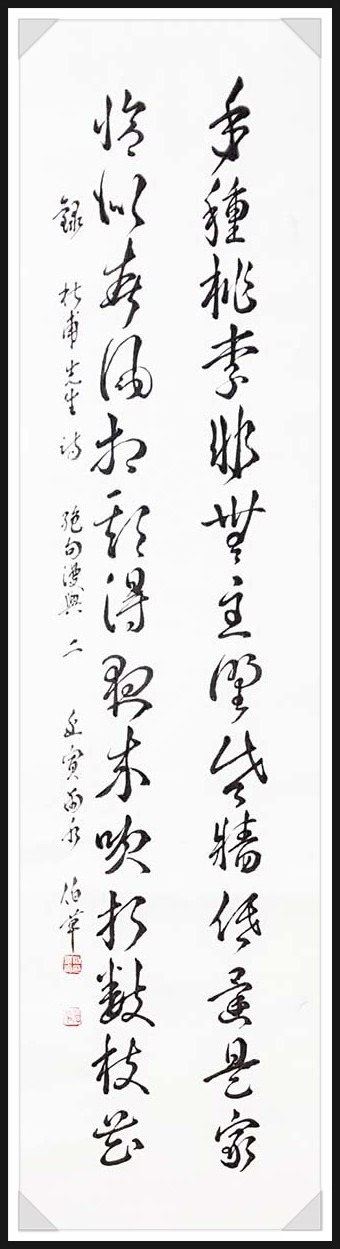 手種桃李非無主野老牆低還是家
恰似春風相欺得夜來吹折數枝花
錄 杜甫先生诗 絕句漫興 二 壬寅雨水 伯